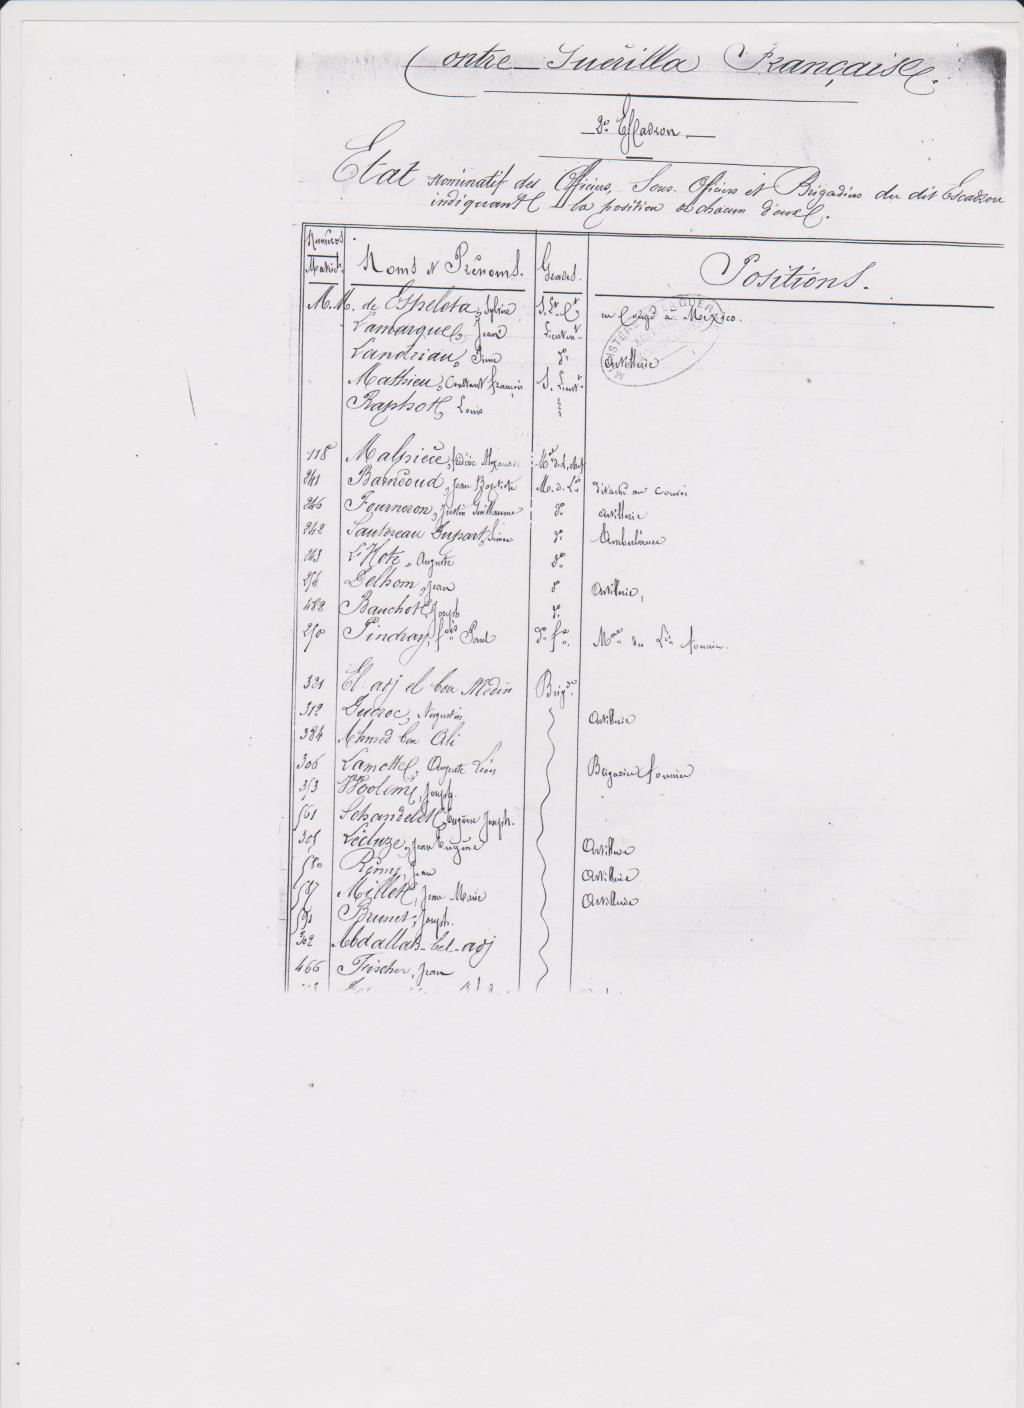 Contre-Guérilla Française.
2e Escadron.
Etat nominatif des Officiers, Sous-Officiers et Brigadiers du dit Escadron
indiquant la position de chacun d'eux.
Numéros Matric. Noms et Prénoms. Grades. Positions.
M.M. de Espeleta, S. Lt en Congé à Mexico.
Lamarque, Jean Lieutent
Landriau, do Artillerie
Mathieu, Constant François S. Lieutt
Raphot, Louis
118 Malpièce, Mal d. L. chef
241 Barnéoud, Jean Baptiste M. d. Lis détaché au
246 Fourneron, Justin Guillaume do Artillerie
242 Sautereau Dupart, do Ambulance
243 L'Hote, Auguste do
Delhom, Jean do Artillerie,
482 Bauchot, Joseph do
250 Pindray, fois Paul do fer Mal du Lis fourrier.
321 El adj el bou Médin Brigdr
312 Ducroc, Augustin Artillerie
384 Ahmed ben Ali
306 Lamotte, Auguste Léon Brigadier fourrier
353 Joseph.
561 Schandelet, Eugène Joseph.
305 Lécluze, Jean Eugène Artillerie
580 Rémy, Jean Artillerie
587 Millet, Jean Marie Artillerie
591 Brunet, Joseph.
302 Abdallah-bel-adj
466 Fischer, Jean
MINISTERE DE LA GUERRE